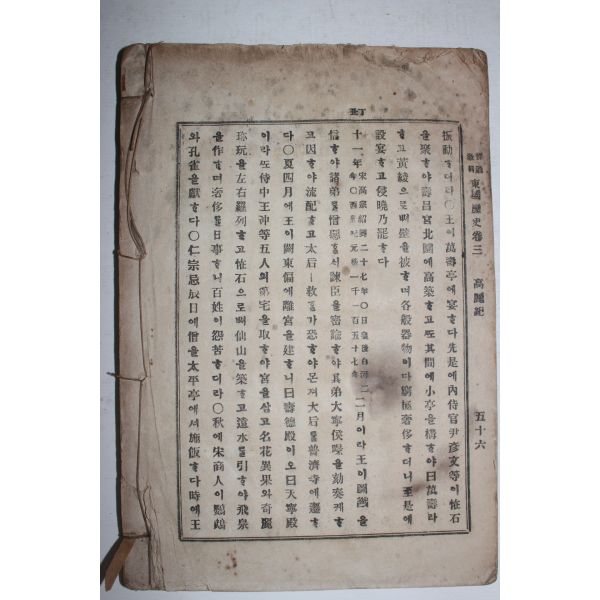 訂正
普通
敎科 東國歷史卷三 高麗紀 五十六
振動ᄒᆞ더라○王이萬壽亭에宴ᄒᆞ다先是에內侍官尹彦文等이恠石
을聚ᄒᆞ야壽昌宮北園에高築ᄒᆞ고ᄯᅩ其間에小亭을構ᄒᆞ야曰萬壽라
ᄒᆞ고黃綾으로ᄡᅥ壁을被ᄒᆞ며各般器物이다窮極奢侈ᄒᆞ더니至是에
設宴ᄒᆞ고侵曉乃罷ᄒᆞ다
十一年 宋高宗紹興二十七年○日皇後白河二年○西曆紀元一千一百五十七年 二月이라王이圖讖을
信ᄒᆞ야諸弟를憎ᄒᆞᆯᄉᆡ諫臣을密諭ᄒᆞ야其弟大寧侯暻을劾奏케ᄒᆞ
고因ᄒᆞ야流配ᄒᆞ고太后ㅣ救ᄒᆞᆯ가恐ᄒᆞ야몬져太后를普濟寺에遷ᄒᆞ
다○夏四月에王이闕東偏에離宮을建ᄒᆞ니曰壽德殿이오曰天寧殿
이라ᄯᅩ侍中王冲等五人의第宅을取ᄒᆞ야宮을삼고名花異果와奇麗
珍玩을左右羅列ᄒᆞ고恠石으로ᄡᅥ仙山을築ᄒᆞ고遠水를引ᄒᆞ야飛泉
을作ᄒᆞ며奢侈를日事ᄒᆞ니百姓이怨苦ᄒᆞ더라○秋에宋商人이鸚鵡
와孔雀을獻ᄒᆞ다○仁宗忌辰日에僧을太平亭에셔施飯ᄒᆞ다時에王